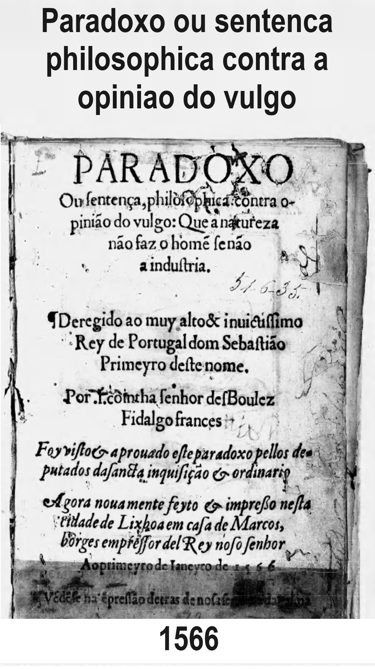 Paradoxo ou sentenca
philosophica contra a
opiniao do vulgo
PARADOXO
Ou sentença, philosophica: contra o-
pinião do vulgo: Que a natureza
não faz o homẽ senão
a industria.
51-6-35.
¶Deregido ao muy alto & inuictissimo
Rey de Portugal dom Sebastião
Primeyro deste nome.
Por senhor desBoulez
Fidalgo frances
Foy visto & aprouado este paradoxo pellos de-
putados da sancta inquisição & ordinario
Agora nouamente feyto & impresso nesta
cidade de Lixboa em casa de Marcos,
borges empressor del Rey noso senhor
Ao primeyro de Ianeyro de 1566
Vēdese na
1566